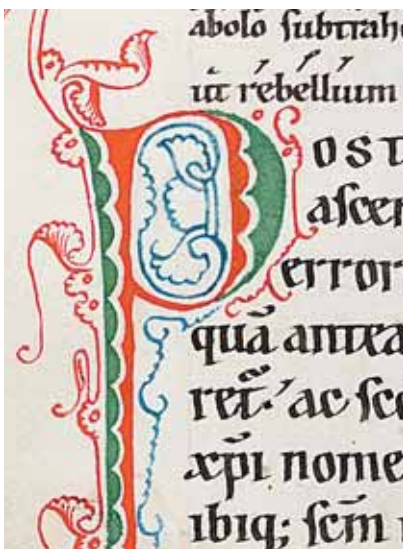 abolo subtrah
ut rebellium
POST
ascen
error
quā antea
ret. ac sc
xp̄i nome
ibiq; scm̄